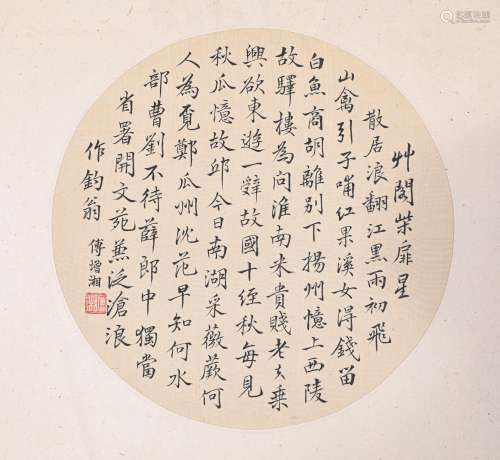 艸閣柴扉星
散居浪翻江黑雨初飛
山禽引子哺紅果溪女得錢留
白魚商胡離別下揚州憶上西陵
故驛樓為問淮南米貴賤老夫乗
興欲東遊一辤故國十經秋每見
秋瓜憶故邱今日南湖采薇蕨何
人為覓鄭瓜州沈范早知何水
部曹劉不待薛郎中獨當
省署開文苑兼泛滄浪
作釣翁
傅增湘